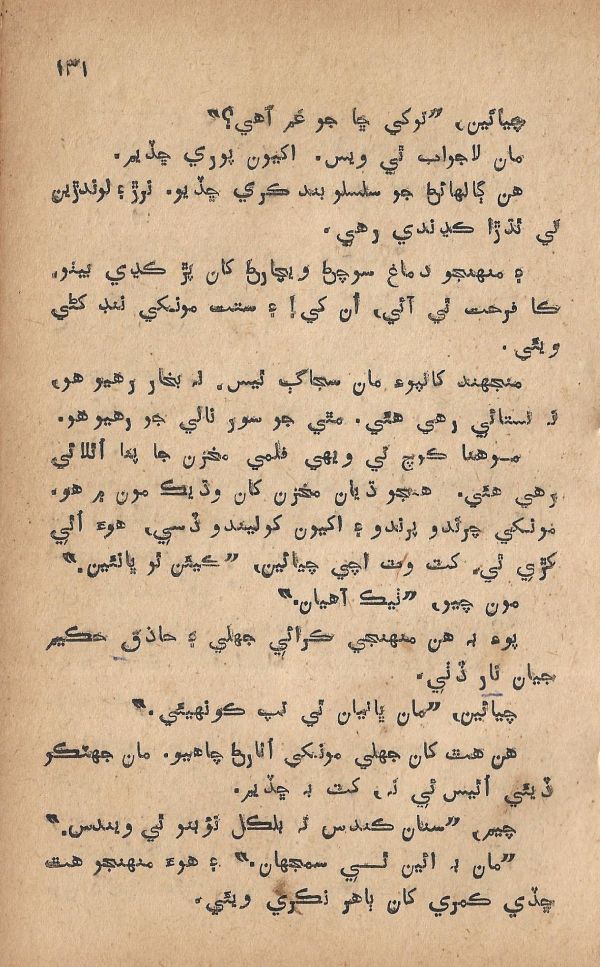 ١٣١
چيائين، ”توکي ڇا جو غم آهي؟“
مان لاجواب ٿي ويس. اکيون پوري ڇڏيم.
هن ڳالهائڻ جو سلسلو بند ڪري ڇڏيو. نرڙ ۽ لوندڙين
تي ٿڌڙا ڪڍندي رهي.
۽ منهنجو دماغ سوچڻ ويچارڻ کان پڙ ڪڍي بيٺو.
ڪا فرحت ٿي آئي، اُن کي! ۽ ستت مونکي ننڊ کڻي
ويئي.
منجهند کانپوءِ مان سجاڳ ٿيس. نہ بخار رهيو هو،
نہ نستائي رهي هئي. مٿي جو سور نالي جو رهيو هو.
موهنا ڪوچ تي ويهي فلمي مخزن جا پنا اُٿلائي
رهي هئي. هنجو ڌيان مخزن کان وڌيڪ مون ۾ هو.
مونکي چرندو پرندو ۽ اکيون کوليندو ڏسي، هوءَ اُٿي
کڙي ٿي. کٽ وٽ اچي چيائين، ”ڪيئن ٿو ڀانئين.“
مون چيو، ”ٺيڪ آهيان.“
پوءِ بہ هن منهنجي ڪرائي جهلي ۽ حاذق حڪيم
جيان نار ڏٺي.
چيائين، ”مان ڀانيان ٿي تپ ڪونهيئي.“
هن هٿ کان جهلي مونکي اُٿارڻ چاهيو. مان جهٽڪو
ڏيئي اُٿيس ٿي تہ، کٽ بہ ڇڏيم.
چيم، ”سنان ڪندس تہ بلڪل نؤبنو ٿي ويندس.“
”مان بہ ائين ٿي سمجهان.“ ۽ هوءَ منهنجو هٿ
ڇڏي ڪمري کان ٻاهر نڪري ويئي.